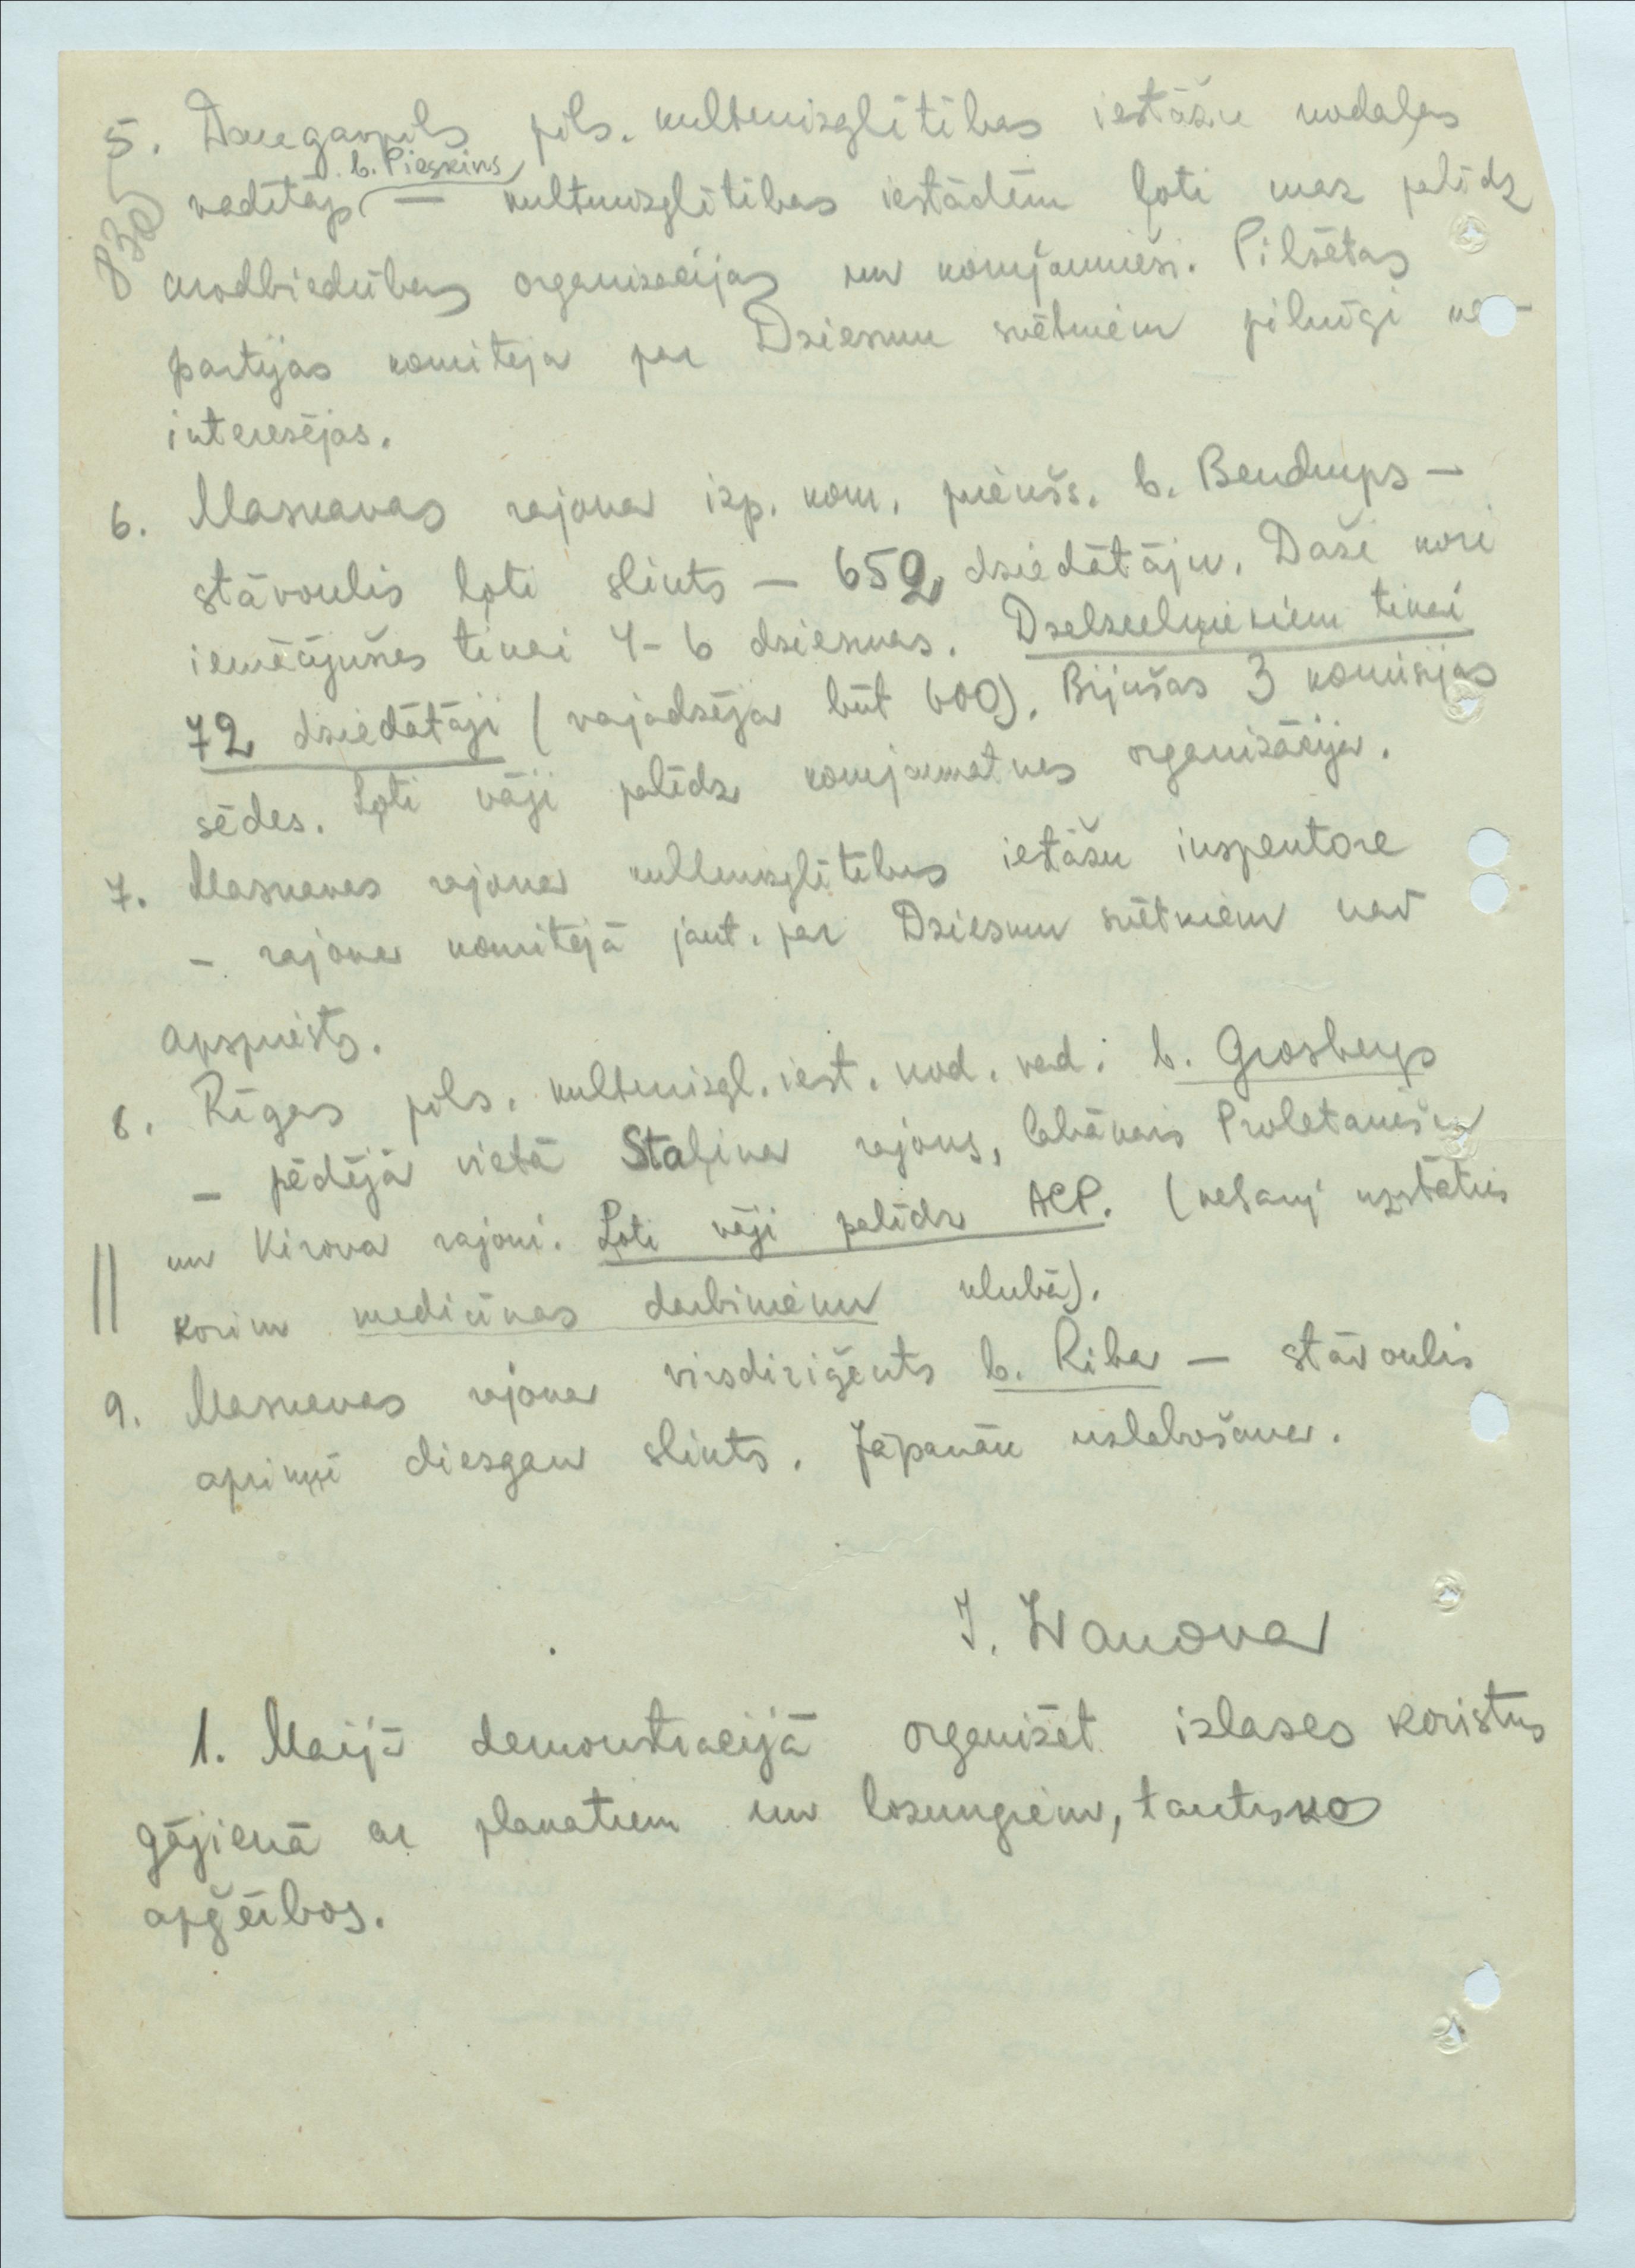 5. Daugavpils pils. kulturizglītības iestāžu nodaļas
b. Pieskins
vadītājs — kulturizglītības iestādēm ļoti maz palīdz
830
arodbiedrības organizacijas un komjaunieši. Pilsētas
partijas komiteja par Dziesmu svētkiem pilnīgi ne-
interesējas.
6. Maskavas rajona izp. kom. priekšs. b. Bendrups —
stāvoklis ļoti slikts — 652 dziedātāju. Daži kori
iemācījušies tikai 4-6 dziesmas. Dzelzceļniekiem tikai
72 dziedātāji (vajadzēja būt 600). Bijušas 3 komisijas
sēdes. Ļoti vāji palīdz komjaunatnes organizācija.
7. Maskavas rajona kulturizglītības iestāžu inspektore
— rajona komitejā jaut. par Dziesmu svētkiem nav
apspriests.
8. Rīgas pils. kulturizgl. iest. nod. vad. b. Grosbergs
— pēdējā vietā Staļina rajons, labākais Proletariešu
un Kirova rajoni. Ļoti vāji palīdz ACP. (neļauj uzstāties
korim medicīnas darbinieku klubā).
9. Maskavas rajona virsdiriģents b. Riba — stāvoklis
apriņķī diezgan slikts. Jāpanāk uzlabošana.
I. Ivanova
1. Maijā demonstracijā organizēt izlases koristus
gājienā ar plakatiem un lozungiem, tautiskos
apģērbos.